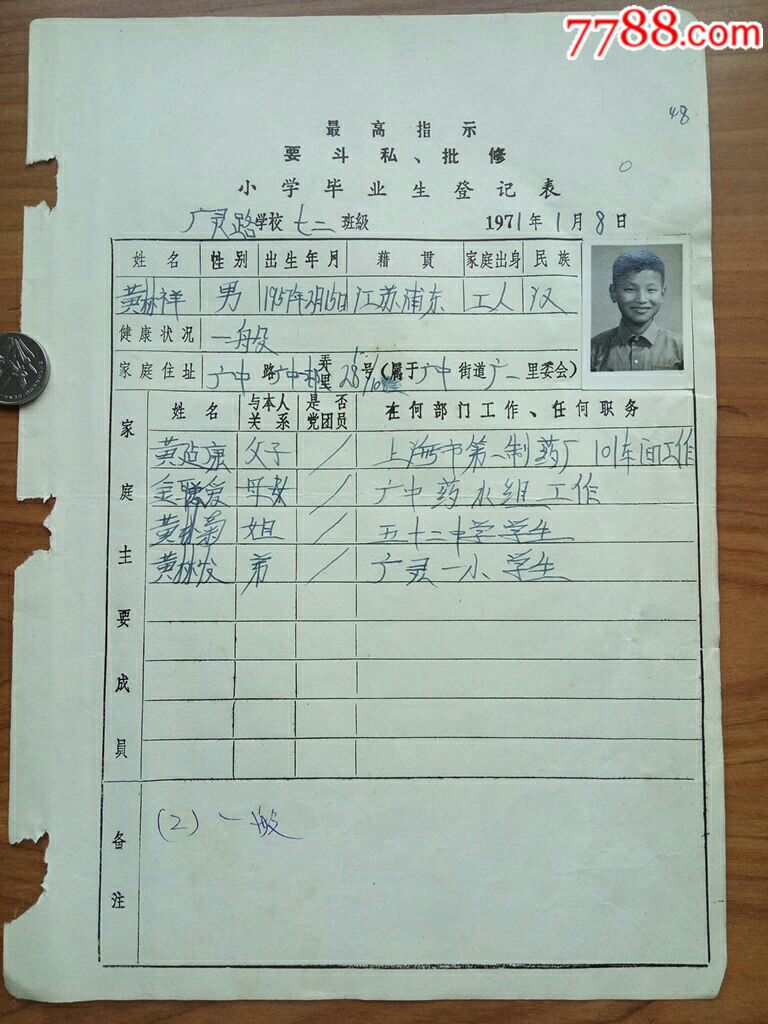 7788.com
48
最高指示
要斗私、批修
小学毕业生登记表
广灵路学校 七二 班级 1971年1月8日
姓名 性别 出生年月 籍贯 家庭出身 民族
黄林祥 男 1957年2月15日 江苏浦东 工人 汉
健康状况 一般
家庭住址 广中路广中邨弄里28号(属于广中街道广一里委会)
家庭主要成员
姓名 与本人关系 是否党团员 在何部门工作、任何职务
黄 康 父子 / 上海市第一制药厂101车间工作
金 爱 母 / 广中药水组工作
黄林菊 姐 / 五十二中学学生
黄林发 弟 / 广灵一小学生
备注
(2)一般